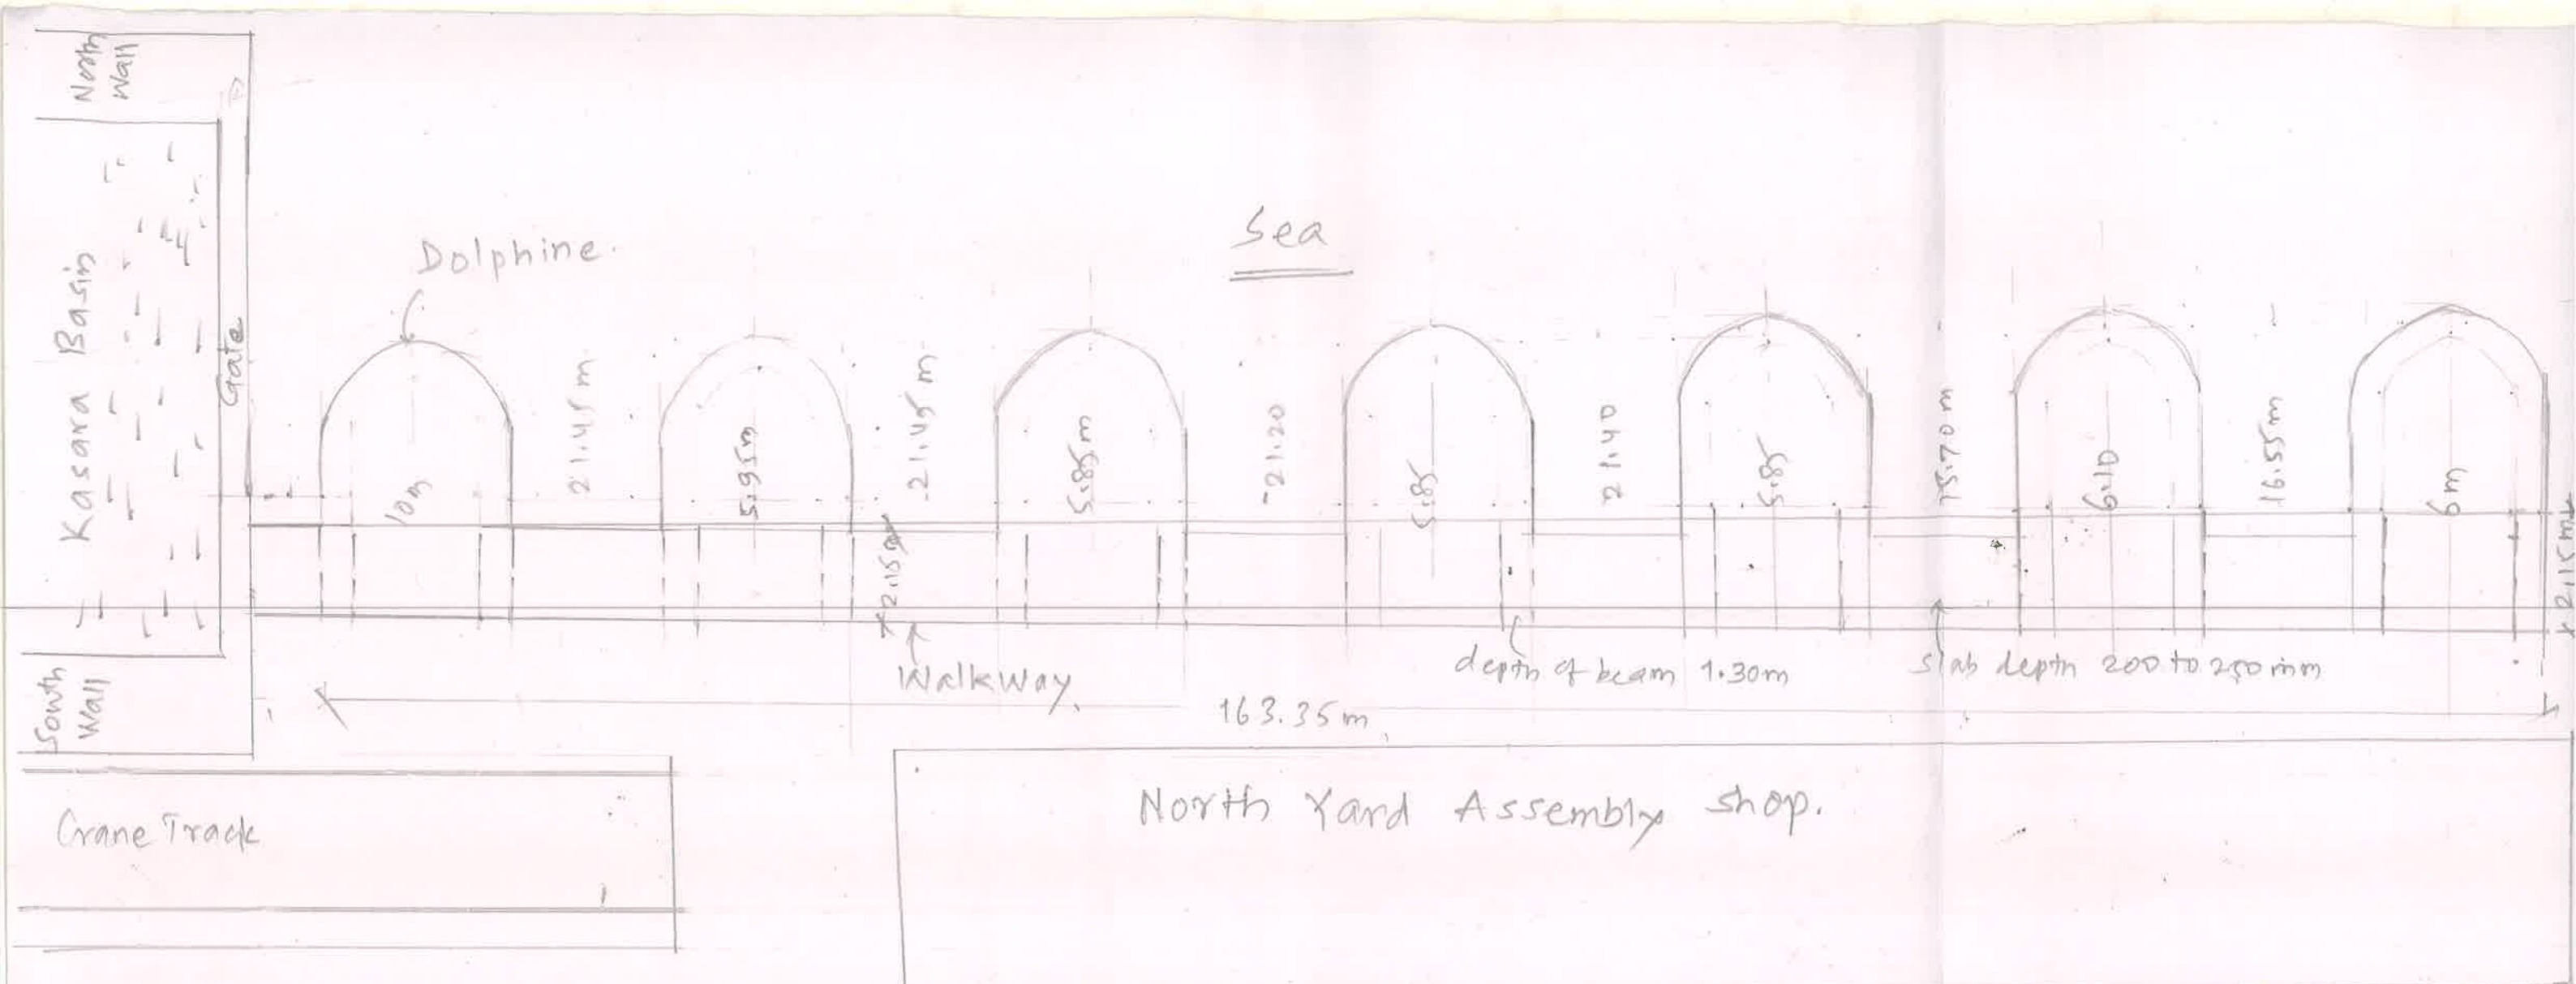 North
Wall
Kasara Basin
Gate
South
Wall
Dolphine
Sea
10m
21.45 m
5.95m
21.45 m
5.85m
21.20
5.85
21.40
5.85
15.70 m
6.10
16.55m
6m
2.15m
2.15m
Walkway
depth of beam 1.30m
slab depth 200 to 250 mm
163.35m
Crane Track
North Yard Assembly shop.